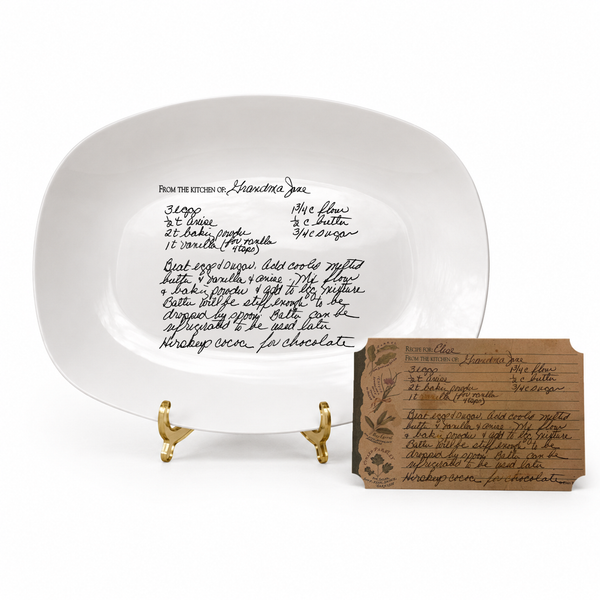 FROM THE KITCHEN OF: Grandma Jane
3 eggs 1 3/4 c flour
½ t anise ½ c butter
2t baking powder 3/4 c sugar
1t vanilla (for vanilla
4tsps)
Beat eggs & sugar. Add cooled melted
butter & vanilla & anise. Mix flour
& baking powder & add to egg mixture
Batter will be stiff enough to be
dropped by spoon. Batter can be
refrigerated to be used later
Hersheys cocoa for chocolate
RECIPE FOR:
FROM THE KITCHEN OF: Grandma Jane
3 eggs 1 3/4 c flour
½ t anise ½ c butter
2t baking powder 3/4 c sugar
1t vanilla (for vanilla
4tsps)
Beat eggs & sugar. Add cooled melted
butter & vanilla & anise. Mix flour
& baking powder & add to egg mixture
Batter will be stiff enough to be
dropped by spoon. Batter can be
refrigerated to be used later
Hersheys cocoa for chocolate